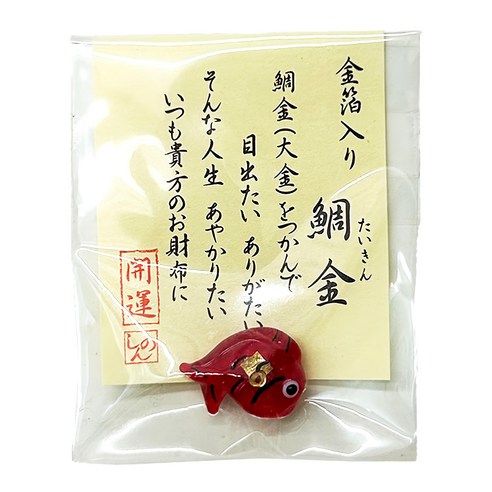 金箔入り
鯛金
たいきん
鯛金(大金)をつかんで
目出たい ありがたい
そんな人生 あやかりたい
いつも貴方のお財布に
開運
しのん